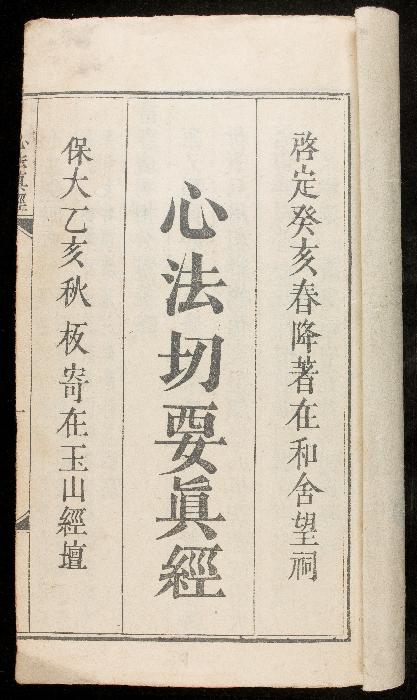 啓定癸亥春降著在和舍望祠
心法切要眞經
保大乙亥秋板寄在玉山經壇
心法眞經